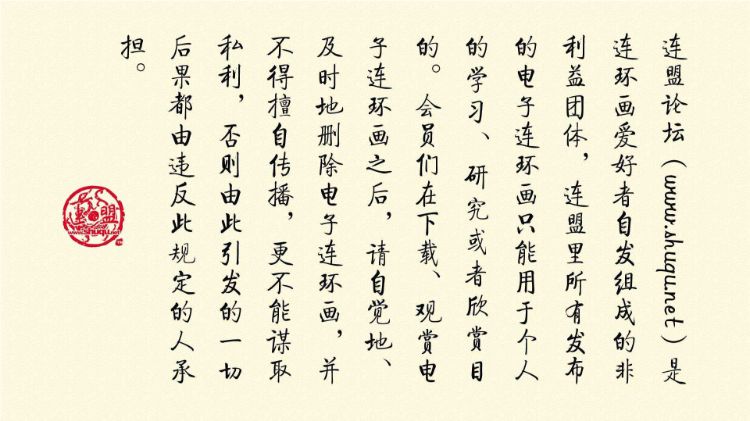 连盟论坛（www.shuqu.net）是
连环画爱好者自发组成的非
利益团体，连盟里所有发布
的电子连环画只能用于个人
的学习、研究或者欣赏目
的。会员们在下载、观赏电
子连环画之后，请自觉地、
及时地删除电子连环画，并
不得擅自传播，更不能谋取
私利，否则由此引发的一切
后果都由违反此规定的人承
担。
连盟
www.shuqu.net